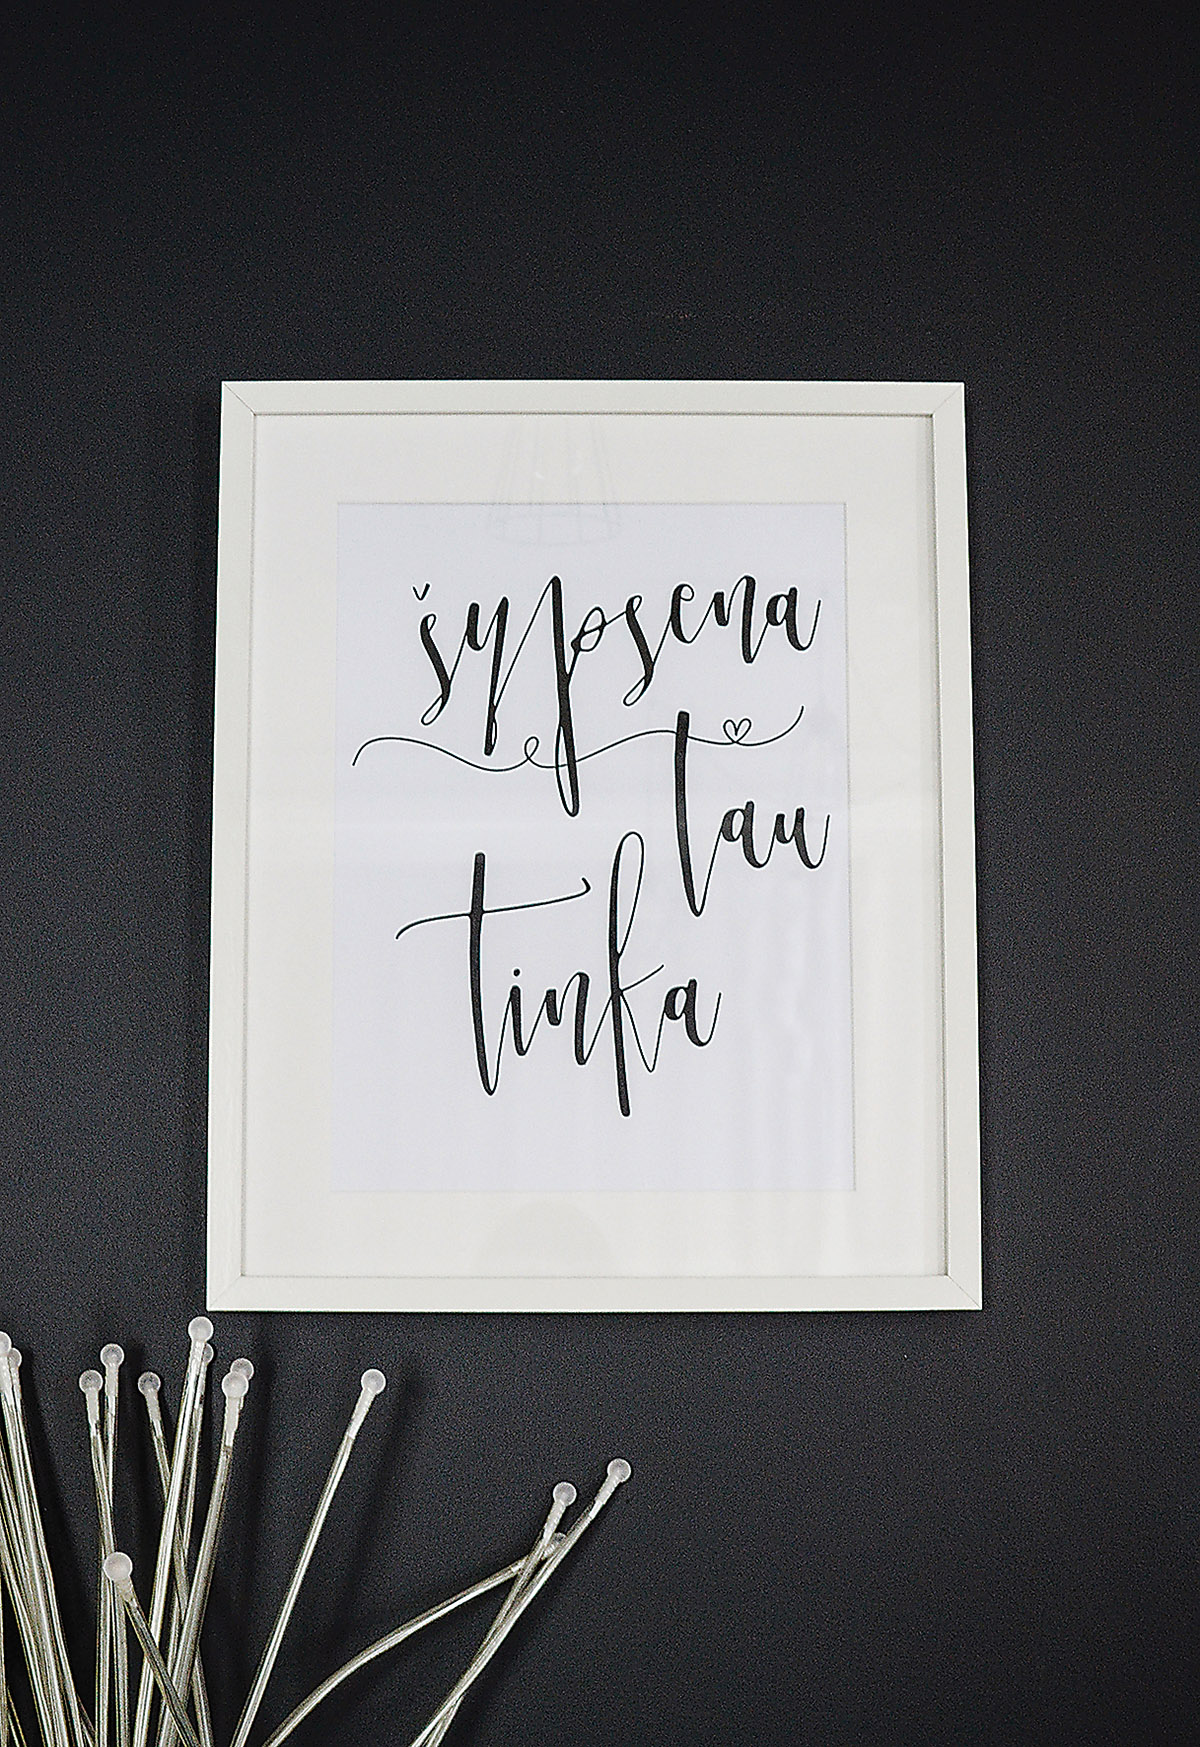 šypsena
tau
tinka